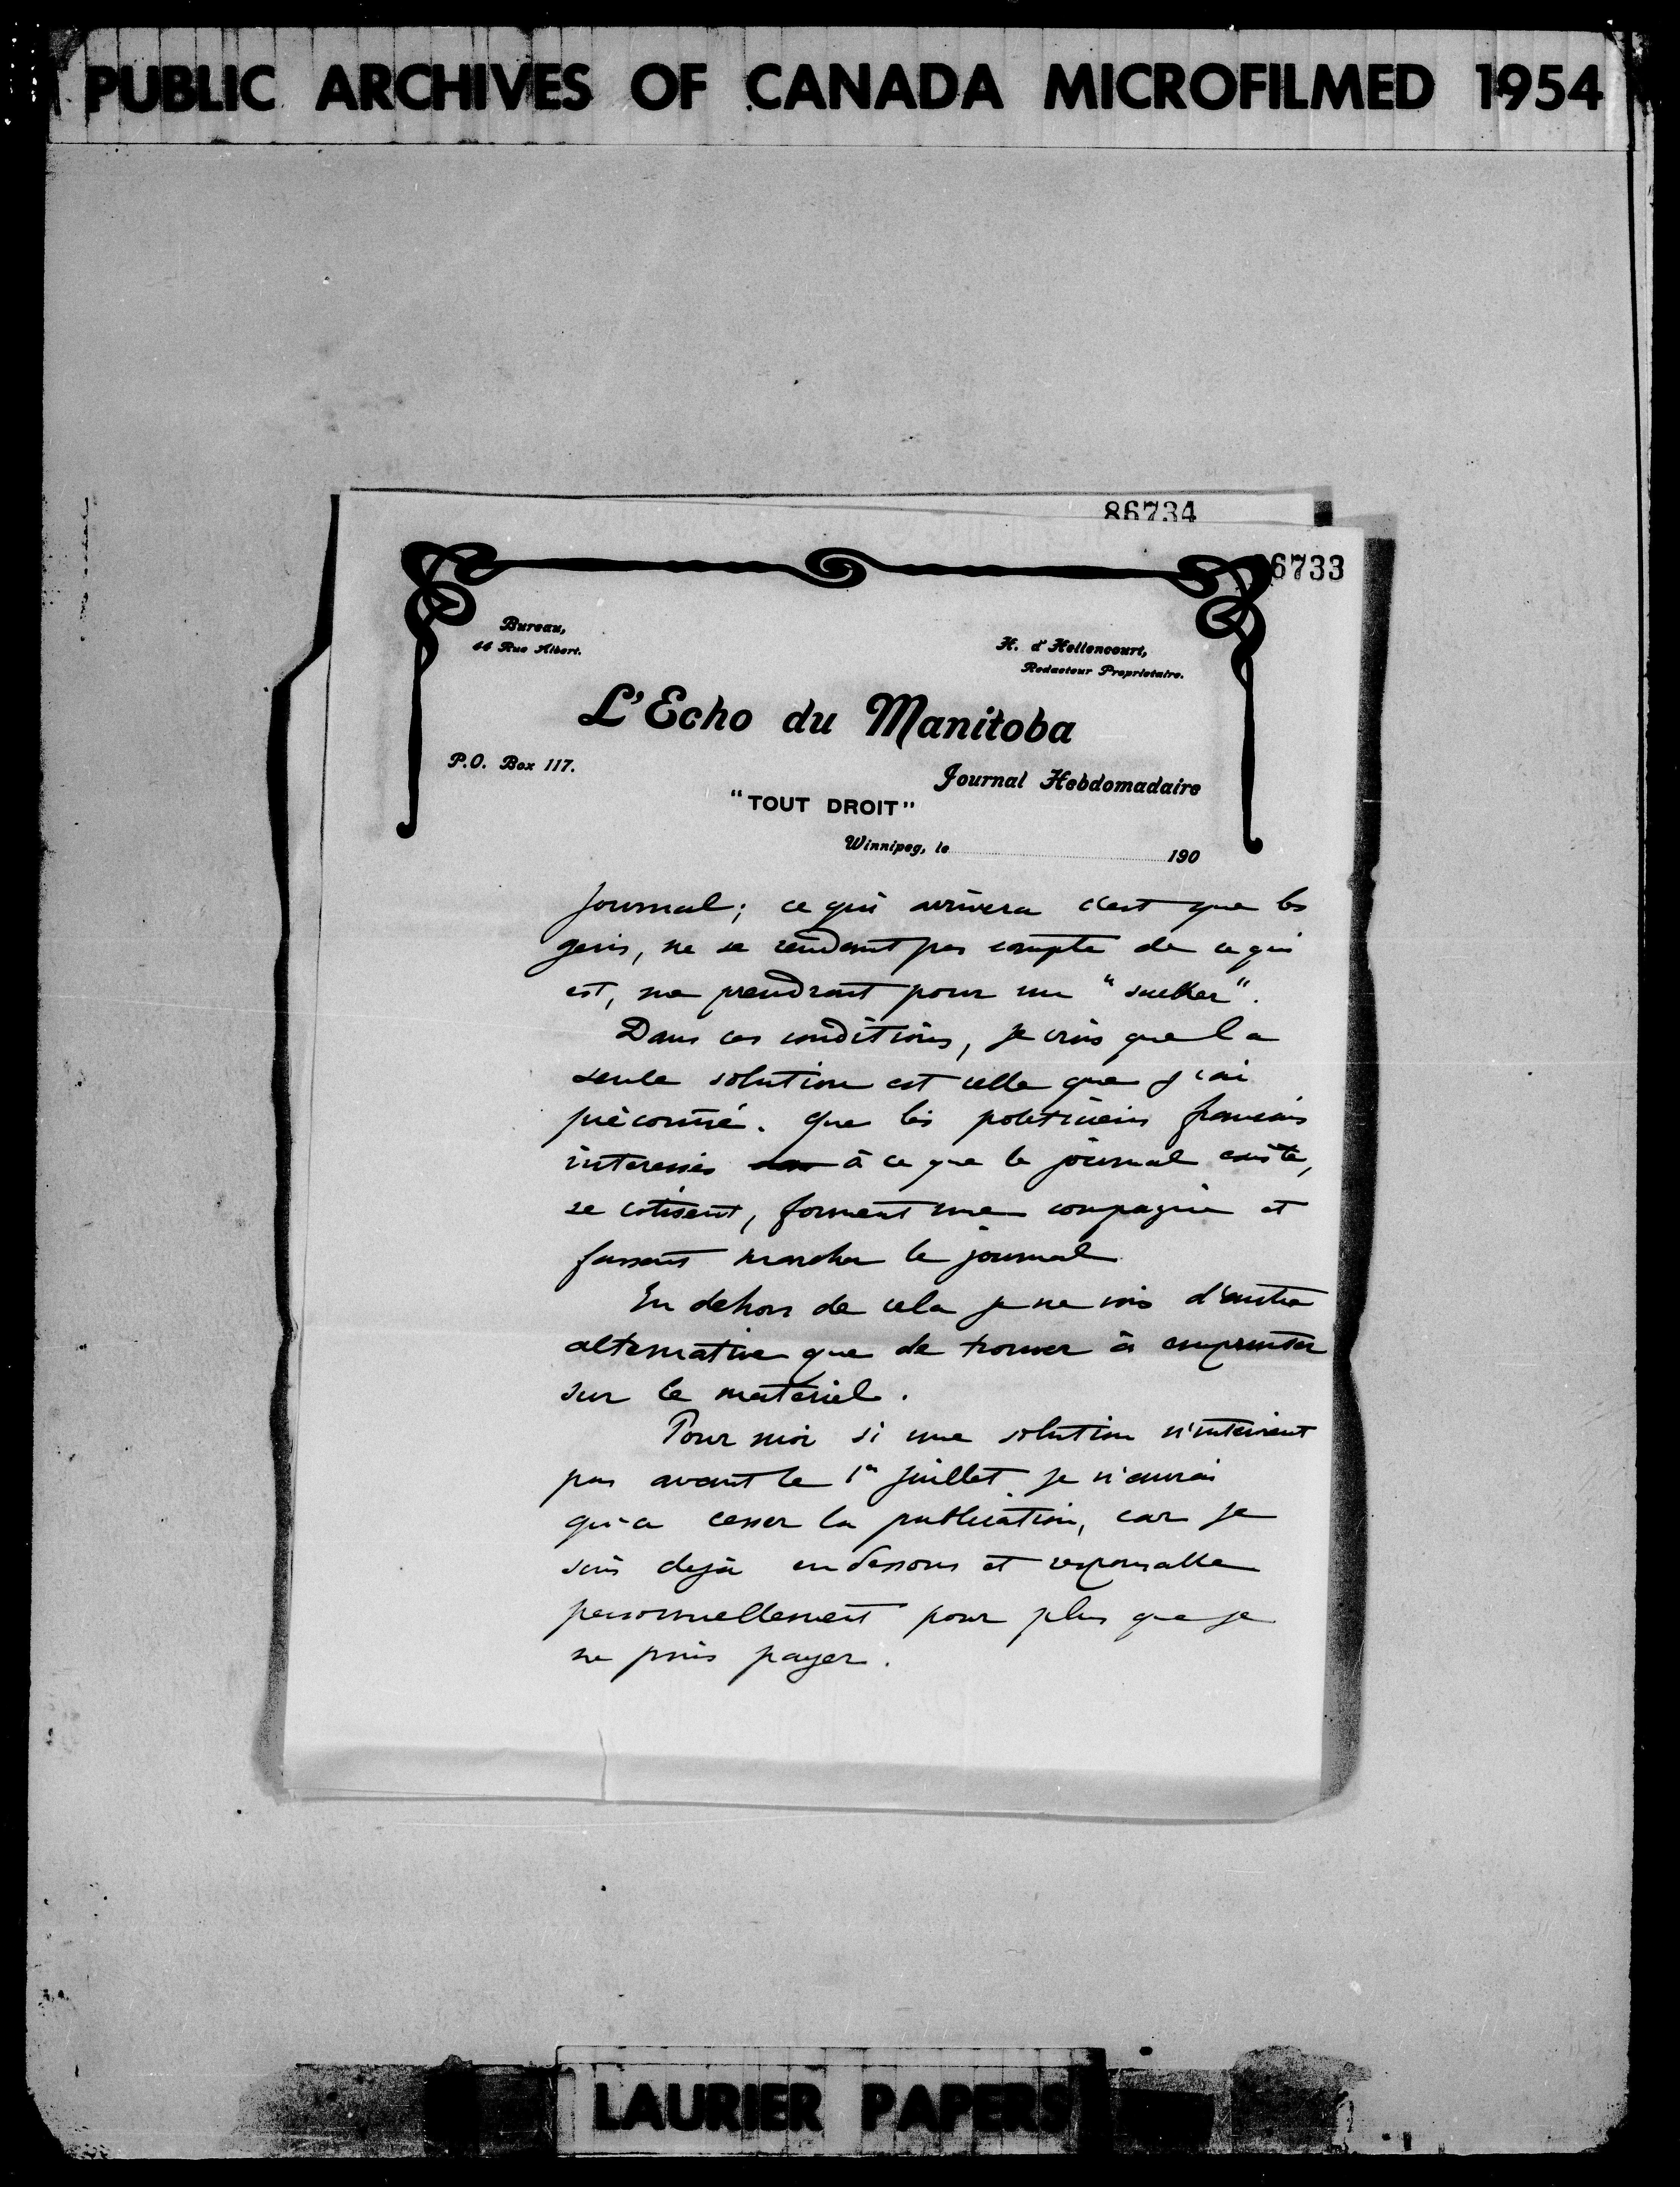 PUBLIC ARCHIVES OF CANADA MICROFILMED 1954
86734
6733
Bureau,
44 Rue Albert.
H. d'Hellencourt,
Redacteur Proprietaire.
L'Echo du Manitoba
P.O. Box 117.
Journal Hebdomadaire
"TOUT DROIT"
Winnipeg, le 190
journal; ce qui arrivera c'est que les
gens, ne se rendant pas compte de ce qui
est, me prendront pour un "sucker".
Dans ces conditions, je crois que la
seule solution est celle que j'ai
préconisé. Que les politiciens francais
interessés à ce que le journal existe,
se cotisent, forment une compagnie et
fassent marcher le journal
En dehors de cela je ne vois d'autre
alternative que de trouver à emprunter
sur le materiel.
Pour moi si une solution n'intervient
pas avant le 1er juillet je n'aurai
qu'a cesser la publication, car je
suis dejà en dessous et responsable
personnellement pour plus que je
ne puis payer.
LAURIER PAPERS